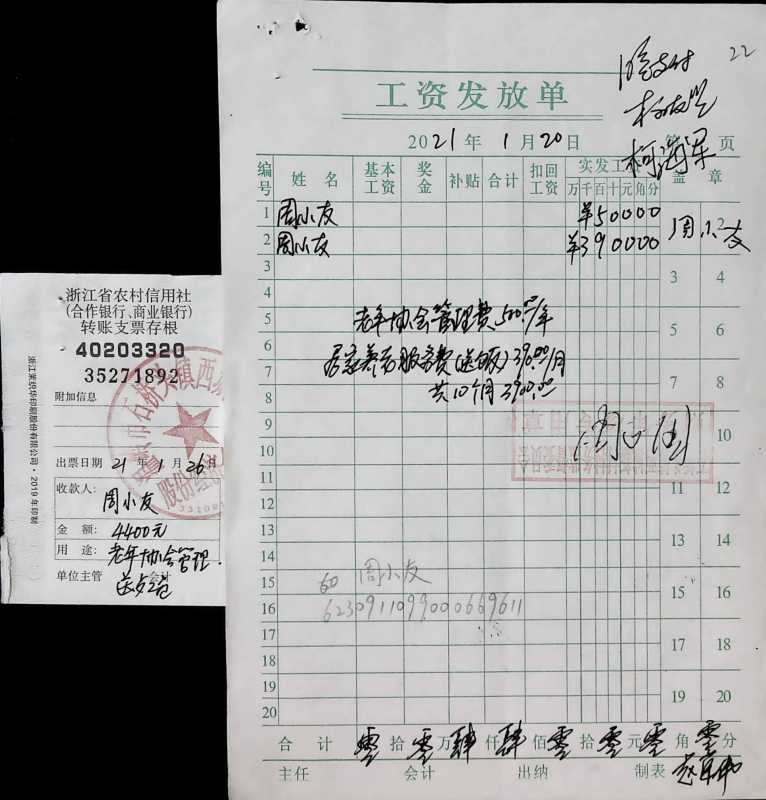 浙江省农村信用社
(合作银行、商业银行)
转账支票存根
40203320
35271892
附加信息
出票日期 21年1月26日
收款人:
周小友
金额: 4400元
用途: 老年协会管理
单位主管 会计
浙江茉织华印刷股份有限公司·2019年印制
22
工资发放单
2021年1月20日
第 页
编号 姓名 基本工资 奖金 补贴 合计 扣回工资 实发工 万千百十元角分 盖章
1 周小友 ¥50000
2 周小友 ¥390000 周小友 2
3 3 4
4
5 老年协会管理费500.00/年 5 6
6 居家养老服务费(送饭)390.00/月
7 共10个月3900.00 7 8
8
9 10
10
11 11 12
12
13 13 14
14
15 周小友 15 16
16 6230911099000669611
17 17 18
18
19 19 20
20
合计 零拾零万肆仟肆佰零拾零元零角零分
主任 会计 出纳 制表